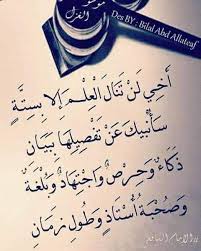 Des BY : Bilal Abd Alluteaf
أَخِي لَنْ تَنَالَ الْعِلْمَ إِلا بِسِتَّةٍ
سَأُنْبِيكَ عَنْ تَفْصِيلِهَا بِبَيَانِ
ذَكَاءٌ وَحِرْصٌ وَاجْتِهَادٌ وَبُلْغَةٌ
وَصُحْبَةُ أُسْتَاذٍ وَطُولُ زَمَانِ
الإمام الشافعي